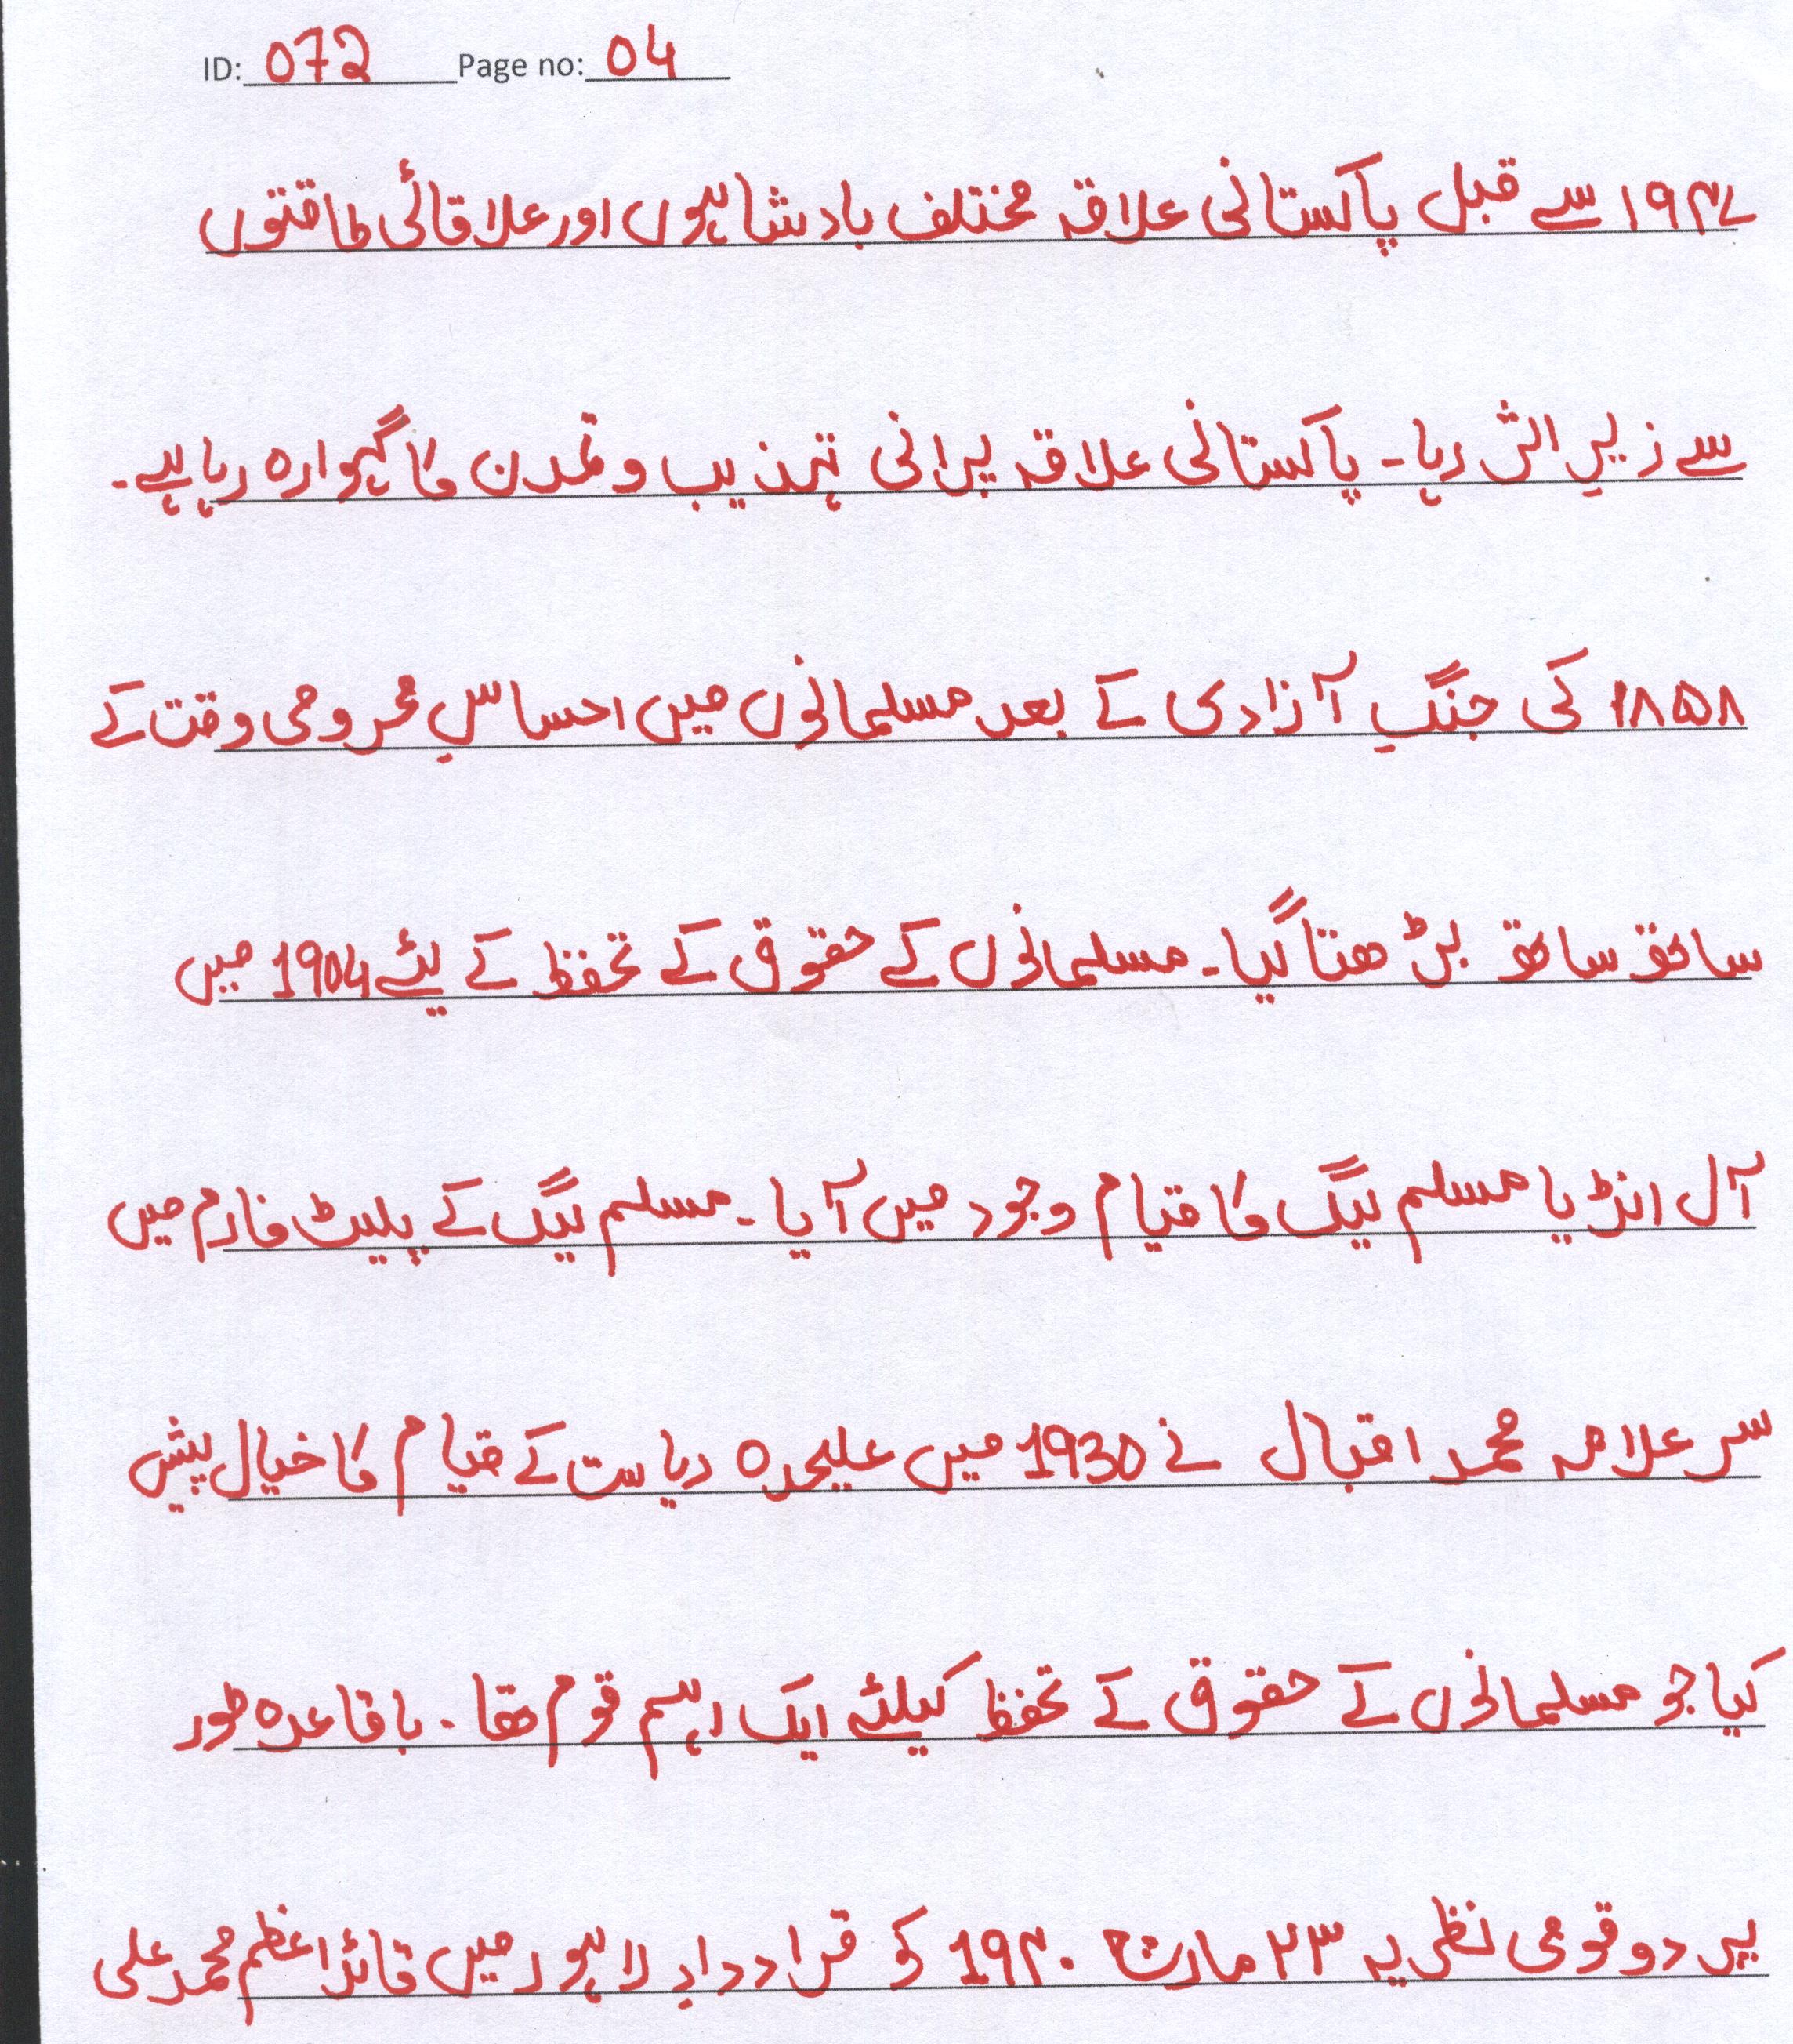 ID: 072 Page no: 04
۱۹۴۷ سے قبل پاکستانی علاقہ مختلف بادشاہوں اور علاقائی طاقتوں
سے زیرِ اثر رہا۔ پاکستانی علاقہ پرانی تہذیب و تمدن کا گہوارہ رہا ہے۔
۱۸۵۸ کی جنگِ آزادی کے بعد مسلمانوں میں احساسِ محرومی وقت کے
ساتھ ساتھ بڑھتا گیا۔ مسلمانوں کے حقوق کے تحفظ کے لیئے 1904 میں
آل انڈیا مسلم لیگ کا قیام وجود میں آیا۔ مسلم لیگ کے پلیٹ فارم میں
سر علامہ محمد اقبال نے 1930 میں علیحدہ ریاست کے قیام کا خیال پیش
کیا جو مسلمانوں کے حقوق کے تحفظ کیلئے ایک اہم قوم تھا۔ باقاعدہ طور
پر دو قومی نظریہ ۲۳ مارچ ۱۹۴۰ کو قراردادِ لاہور میں قائداعظم محمد علی